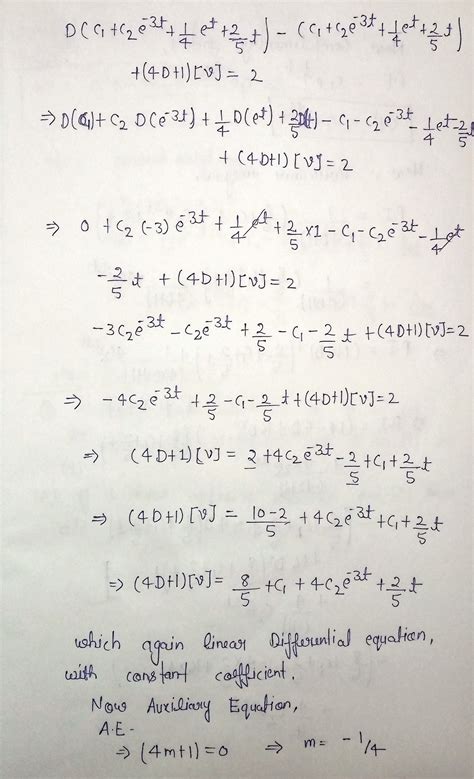 D(c₁+c₂e^{-3t}+1/4 e^t+2/5 t) - (c₁+c₂e^{-3t}+1/4 e^t+2/5 t)
+(4D+1)[v] = 2
⇒ D(c₁)+c₂ D(e^{-3t})+1/4 D(e^t)+2/5 D(t) - c₁ - c₂e^{-3t} - 1/4 e^t - 2/5 t
+ (4D+1)[v] = 2
⇒ 0 + c₂(-3)e^{-3t} + 1/4 e^t + 2/5 ×1 - c₁ - c₂e^{-3t} - 1/4 e^t
- 2/5 t + (4D+1)[v] = 2
-3c₂e^{-3t} - c₂e^{-3t} + 2/5 - c₁ - 2/5 t + (4D+1)[v] = 2
⇒ -4c₂e^{-3t} + 2/5 - c₁ - 2/5 t + (4D+1)[v] = 2
⇒ (4D+1)[v] = 2+4c₂e^{-3t} - 2/5 + c₁ + 2/5 t
⇒ (4D+1)[v] = 10-2/5 + 4c₂e^{-3t} + c₁ + 2/5 t
⇒ (4D+1)[v] = 8/5 + c₁ + 4c₂e^{-3t} + 2/5 t
which again linear Differential equation,
with constant coefficient.
Now Auxiliary Equation,
A.E-
⇒ (4m+1)=0 ⇒ m= -1/4